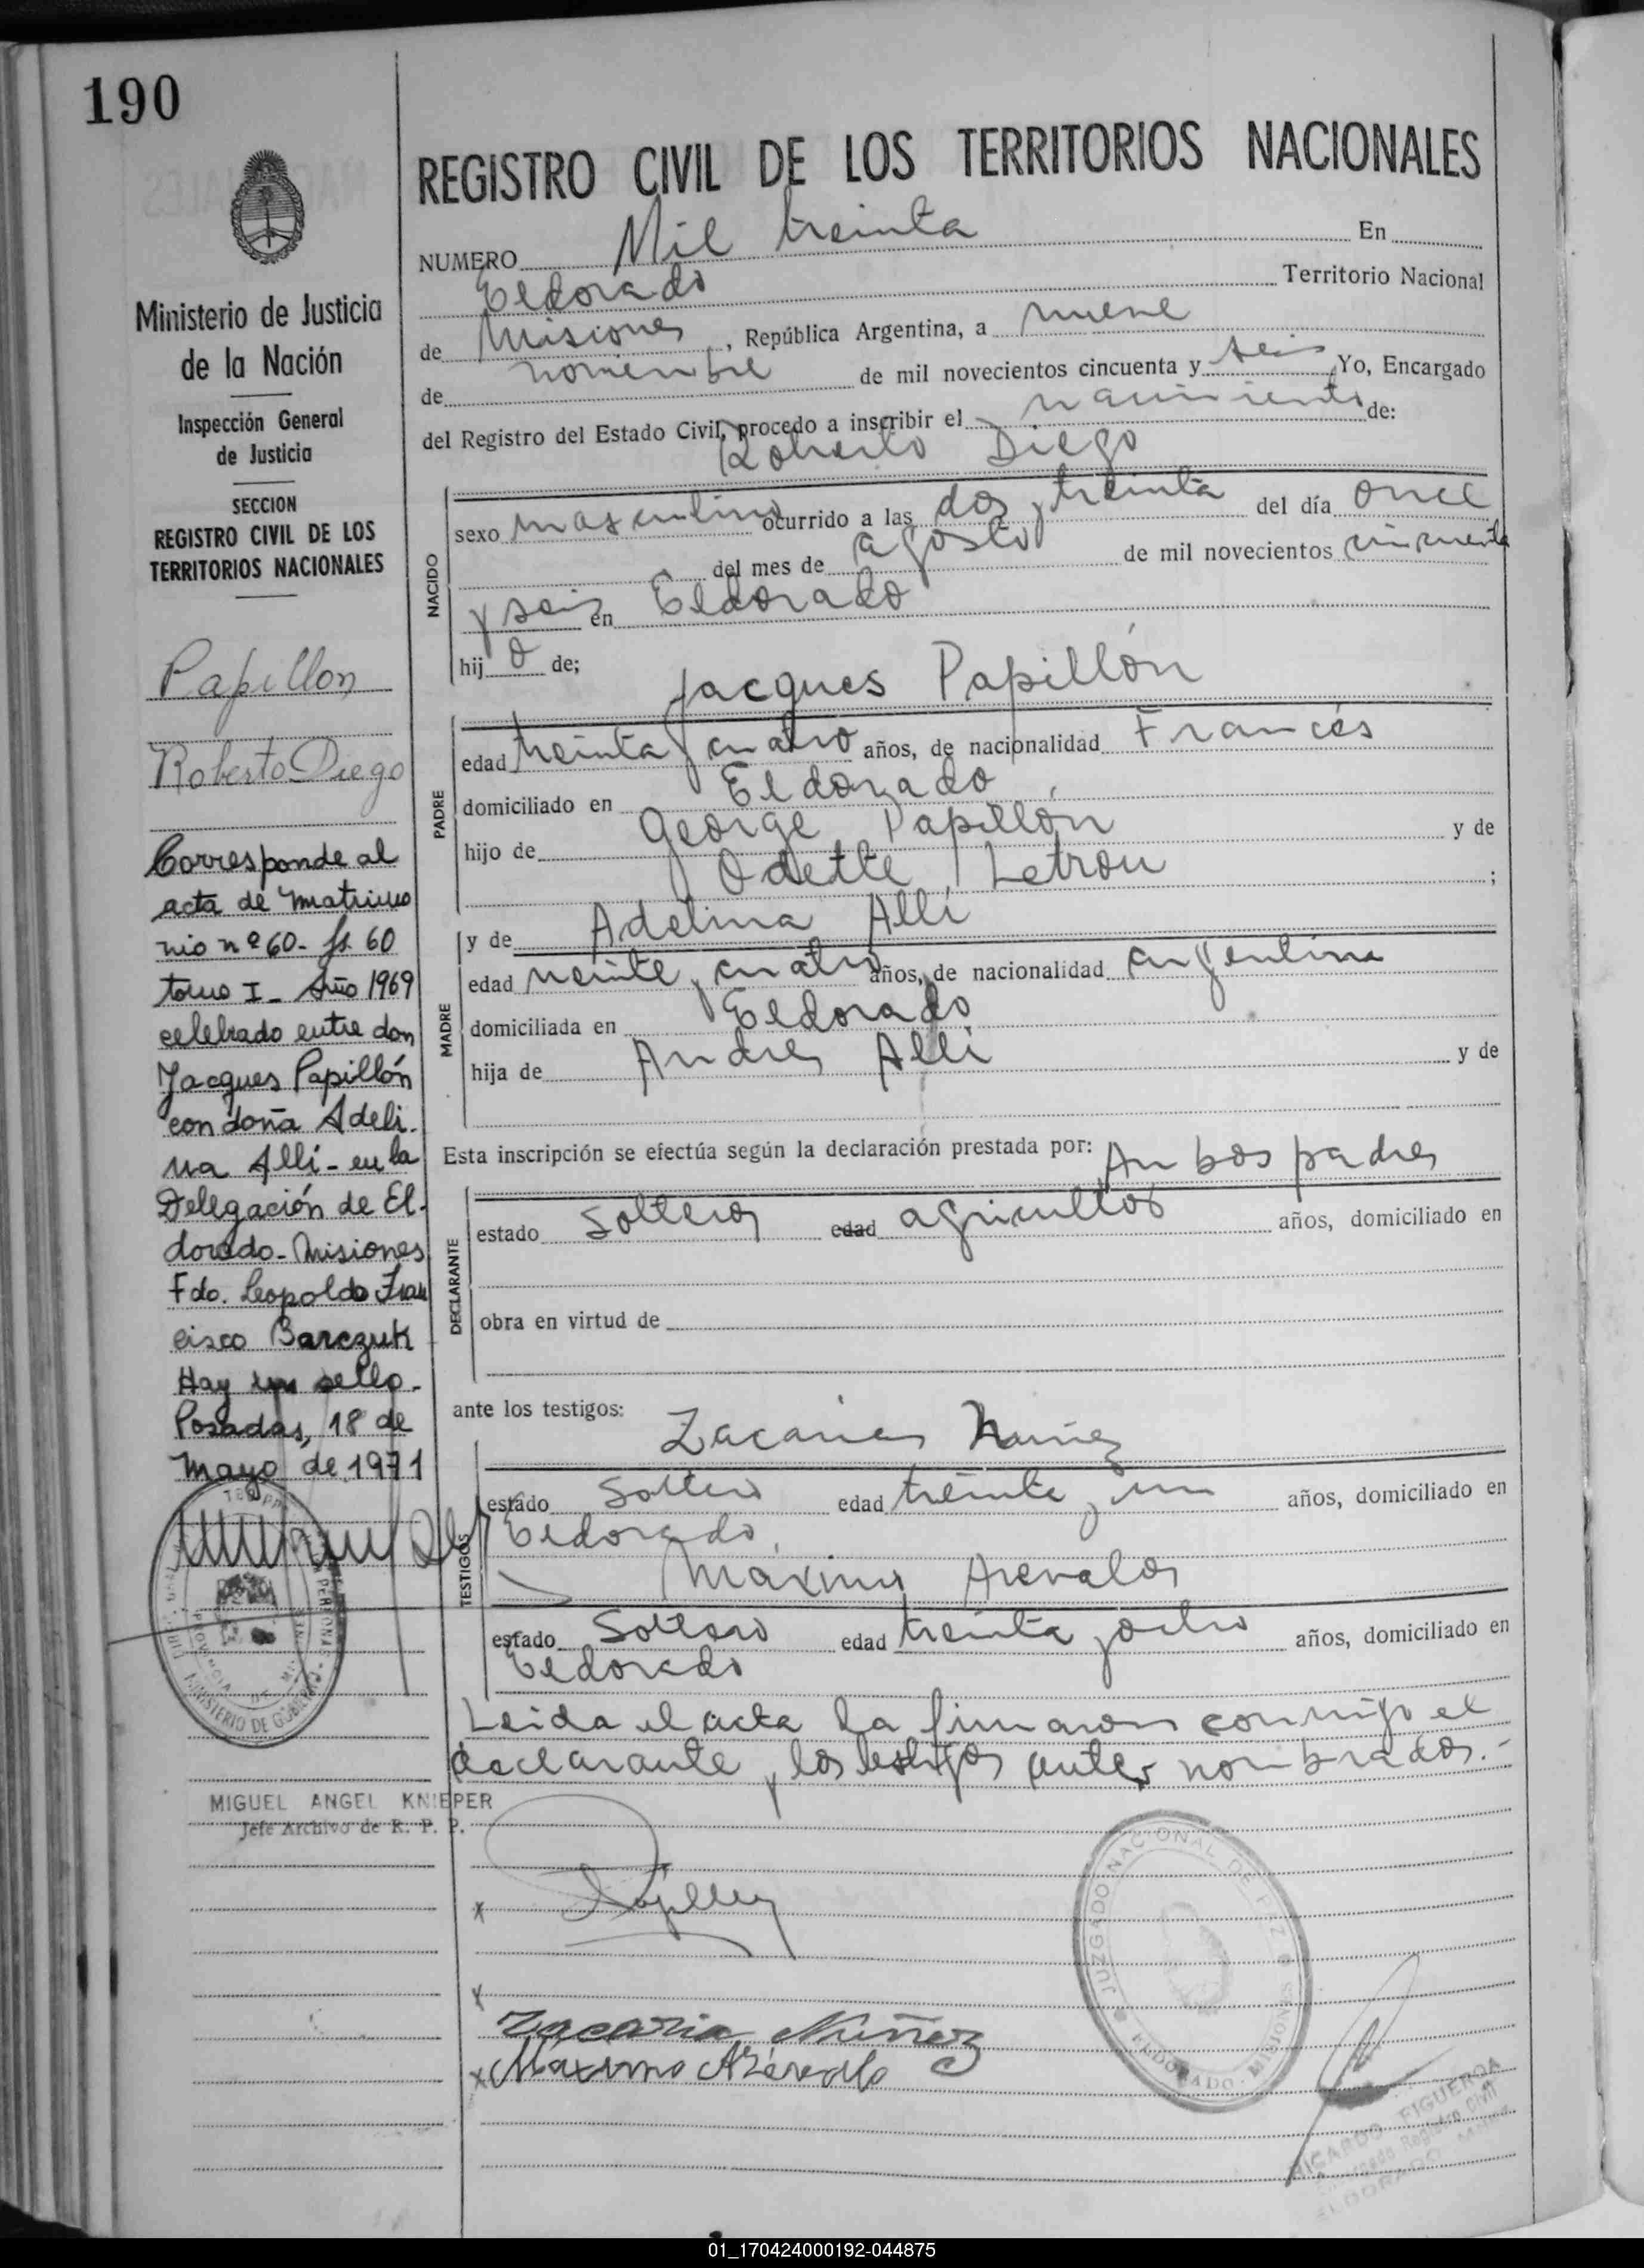 190
Ministerio de Justicia
de la Nación
Inspección General
de Justicia
SECCION
REGISTRO CIVIL DE LOS
TERRITORIOS NACIONALES
Papillon
Roberto Diego
Corresponde al
acta de matrimo
nio nº 60 - fs. 60
tomo I - Año 1969
celebrado entre don
Jacques Papillón
con doña Adeli-
na Alli - en la
Delegación de El-
dorado - Misiones
Fdo. Leopoldo Fran
cisco Barczuk
Hay un sello.
Posadas, 18 de
mayo de 1971
MINISTERIO DE GOBIERNO
PROVINCIA DE
MIGUEL ANGEL KNIEPER
Jefe Archivo de R. P. P.
REGISTRO CIVIL DE LOS TERRITORIOS NACIONALES
NUMERO Mil treinta En
Eldorado Territorio Nacional
de Misiones, República Argentina, a nueve
de noviembre de mil novecientos cincuenta y seis Yo, Encargado
del Registro del Estado Civil, procedo a inscribir el nacimiento de:
Roberto Diego
NACIDO
sexo masculino ocurrido a las dos y treinta del día once
del mes de agosto de mil novecientos cincuenta
y seis en Eldorado
hij o de;
Jacques Papillón
PADRE
edad treinta y cuatro años, de nacionalidad Francés
domiciliado en Eldorado
hijo de George Papillón y de
Odette Letrou ;
y de Adelina Alli
MADRE
edad veinte y cuatro años, de nacionalidad argentina
domiciliada en Eldorado
hija de Andres Alli y de
Esta inscripción se efectúa según la declaración prestada por: Ambos padres
DECLARANTE
estado solteros edad agricultor años, domiciliado en
obra en virtud de
ante los testigos:
Zacarias Nuñez
TESTIGOS
estado soltero edad treinta y un años, domiciliado en
Eldorado
Maximo Arevalos
estado Soltero edad treinta y ocho años, domiciliado en
Eldorado
Leida el acta la firmaron conmigo el
declarante y los testigos antes nombrados.-
x
x
Zacaria Nuñez
x Maximo Arevalo
JUZGADO NACIONAL DE PAZ
ELDORADO - MISIONES
RICARDO FIGUEROA
Encargado Registro Civil
ELDORADO
01_170424000192-044875